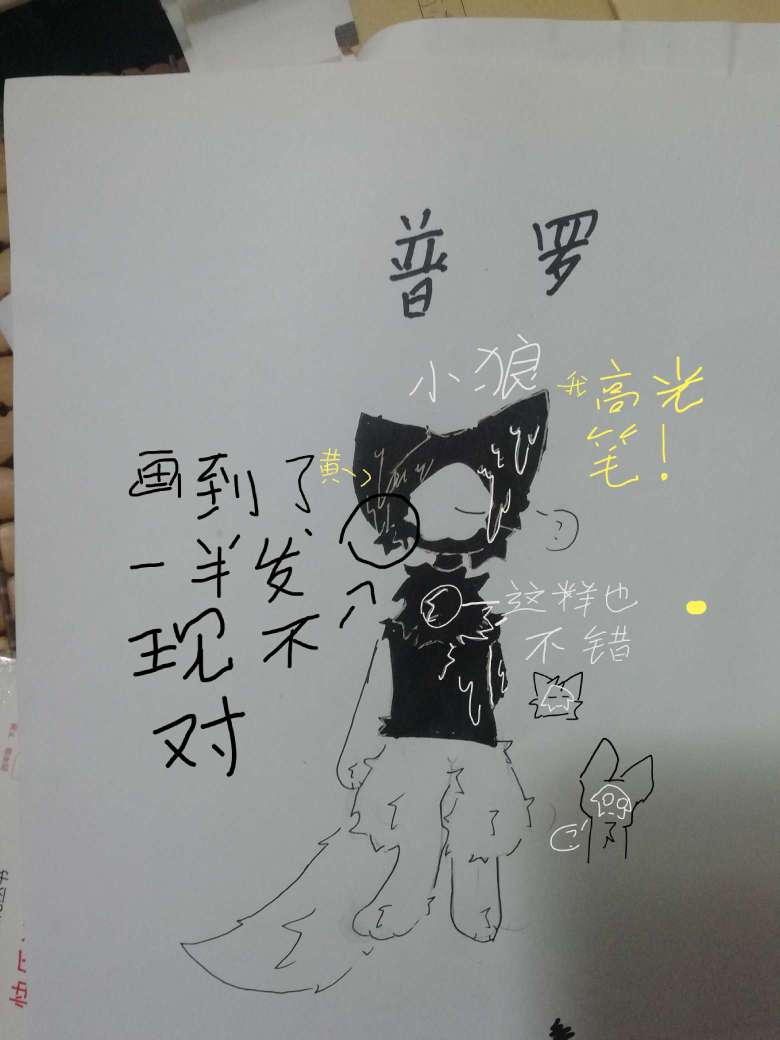 普罗
小狼
我高光
笔！
黄
画到了
一半发
现不
对
这样也
不错